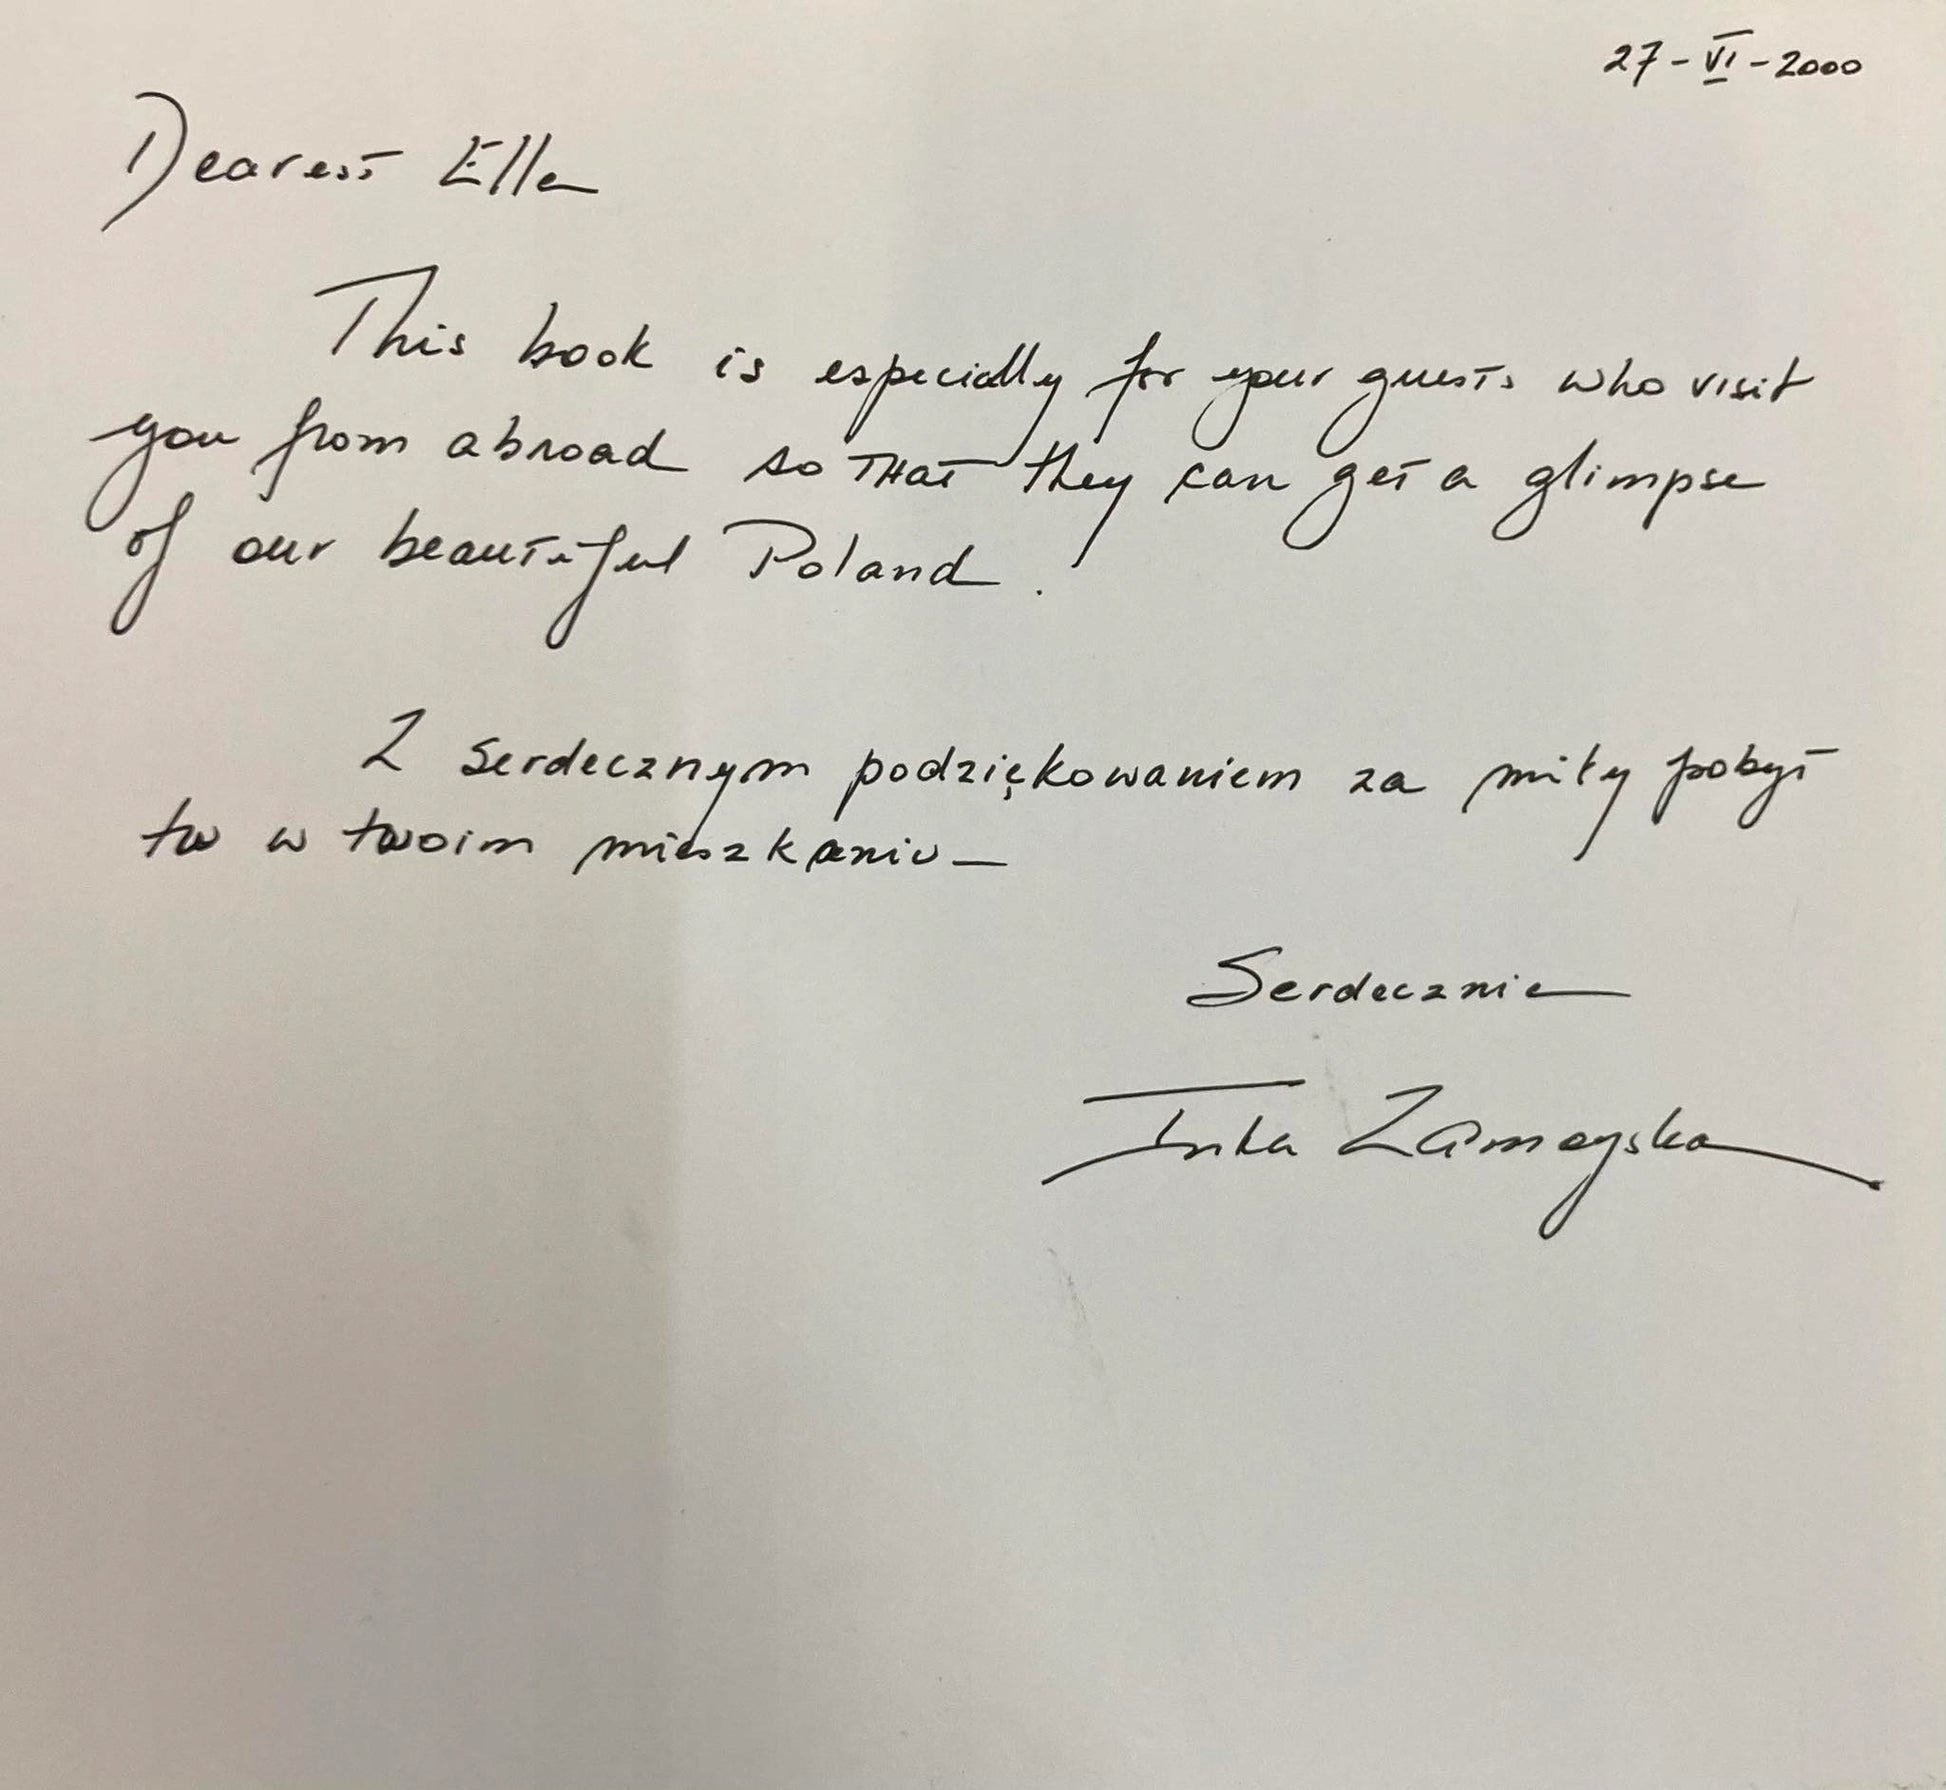 27-VI-2000
Dearest Ella
This book is especially for your guests who visit
you from abroad so THAT they can get a glimpse
of our beautiful Poland.
Z serdecznym podziękowaniem za miły pobyt
tu w twoim mieszkaniu—
Serdecznie
Inka Zamoyska